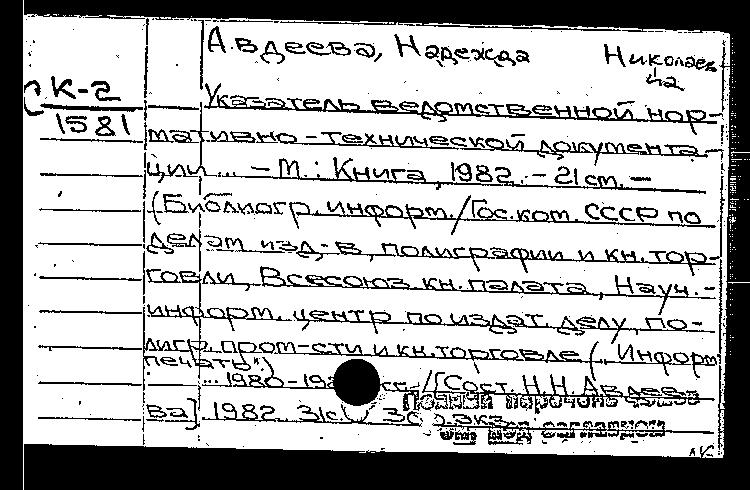 Авдеева, Надежда Николаев-
на
К-2
1581
Указатель ведомственной нор-
мативно-технической документа-
ции... - М.: Книга, 1982. - 21 см. -
(Библиогр. информ./Гос. ком. СССР по
делам изд-в, полиграфии и кн. тор-
говли, Всесоюз. кн. палата, Науч.-
информ. центр по издат. делу, по-
лигр. пром-сти и кн. торговле („Информ
печать")
... 1980- /[Сост. Н.Н. Авдеева
ва]. 1982.
Полный перечень
см. под заглавием